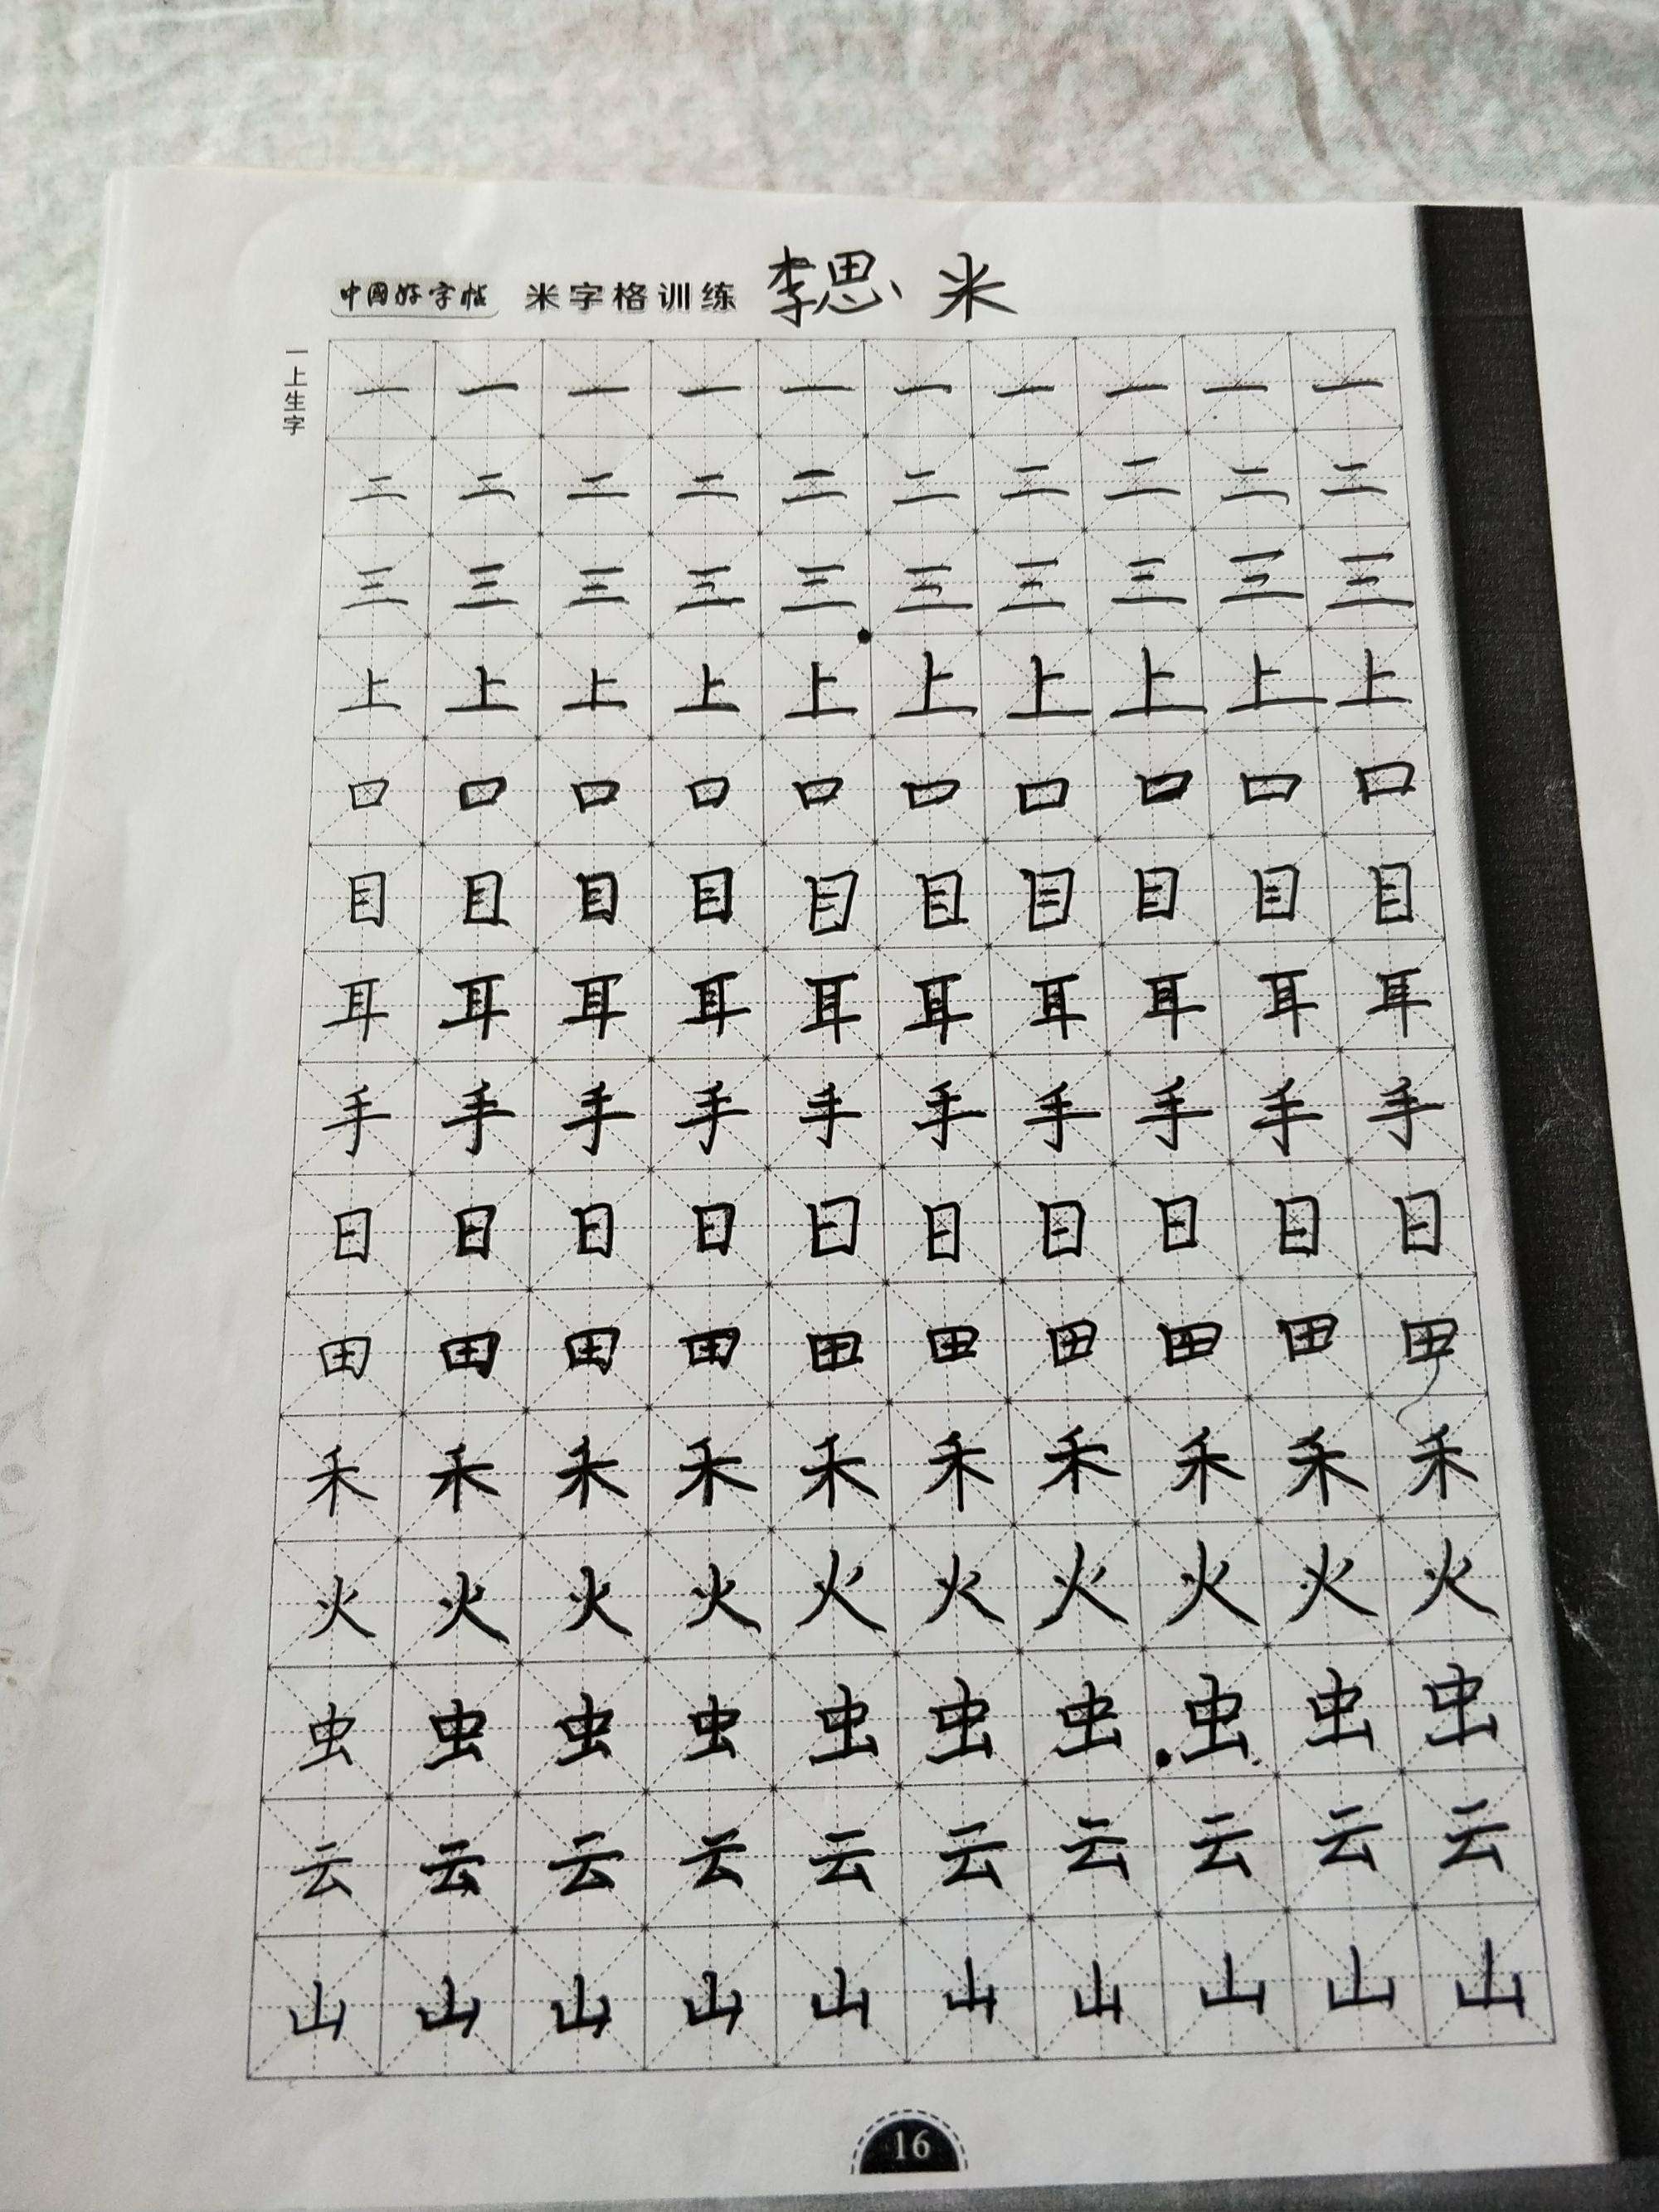 中國好字帖 米字格训练 李思米
一上生字
一 一 一 一 一 一 一 一 一 一
二 二 二 二 二 二 二 二 二 二
三 三 三 三 三 三 三 三 三 三
上 上 上 上 上 上 上 上 上 上
口 口 口 口 口 口 口 口 口 口
目 目 目 目 目 目 目 目 目 目
耳 耳 耳 耳 耳 耳 耳 耳 耳 耳
手 手 手 手 手 手 手 手 手 手
日 日 日 日 日 日 日 日 日 日
田 田 田 田 田 田 田 田 田 田
禾 禾 禾 禾 禾 禾 禾 禾 禾 禾
火 火 火 火 火 火 火 火 火 火
虫 虫 虫 虫 虫 虫 虫 虫 虫 虫
云 云 云 云 云 云 云 云 云 云
山 山 山 山 山 山 山 山 山 山
16